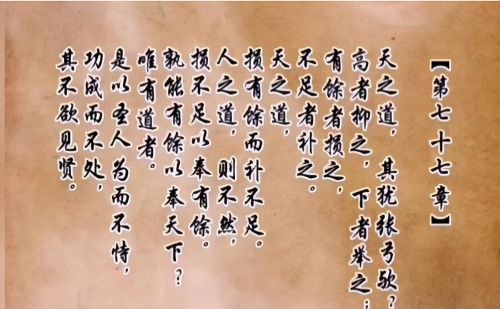 【第七十七章】
天之道，其犹张弓欤？
高者抑之，下者举之；
有馀者损之，
不足者补之。
天之道，
损有馀而补不足。
人之道，则不然，
损不足以奉有馀。
孰能有馀以奉天下？
唯有道者。
是以圣人为而不恃，
功成而不处，
其不欲见贤。